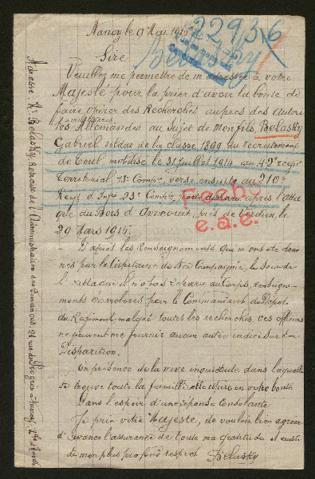 Nancy le 9 Mai 191
22936
Belasky
Sire
Veuillez me permettre de m'adresser à votre
Majesté pour la prier d'avoir la bonté de
faire opérer des Recherches auprès des Autori
tés Allemandes au Sujet de mon fils, Belasky
Gabriel soldat de la classe 1899 du recrutement
de Toul mobilisé le 31 juillet 1914 au 42e regt
Territorial, Compie, versé ensuite au 210e
Regt d'Infie 23e Compie, porté disparu après l'atta
que du Bois d'Avocourt, près de Verdun, le
20 Mars 191
e.a.e.
D'après les Renseignements qui m'ont été don
nés par le Capitaine de Sa Compagnie, le
de l'attaque il n'a pas reparu au Corps, renseign-
ements par le Commandant du Dépôt
du Régiment malgré toutes les recherches, ces officiers
ne peuvent me fournir aucun autre indice sur sa
Disparition.
En présence de la vive inquiétude dans laquelle
se trouve toute la famille
Dans l'espoir d'une réponse Consolante
Je prie votre Majesté, de vouloir bien agréer
d'avance l'assurance de toute ma gratitude et
de mon plus profond respect Belasky
Adresse M. Belasky, Retraité de l'Administration des Finances, rue à Nancy